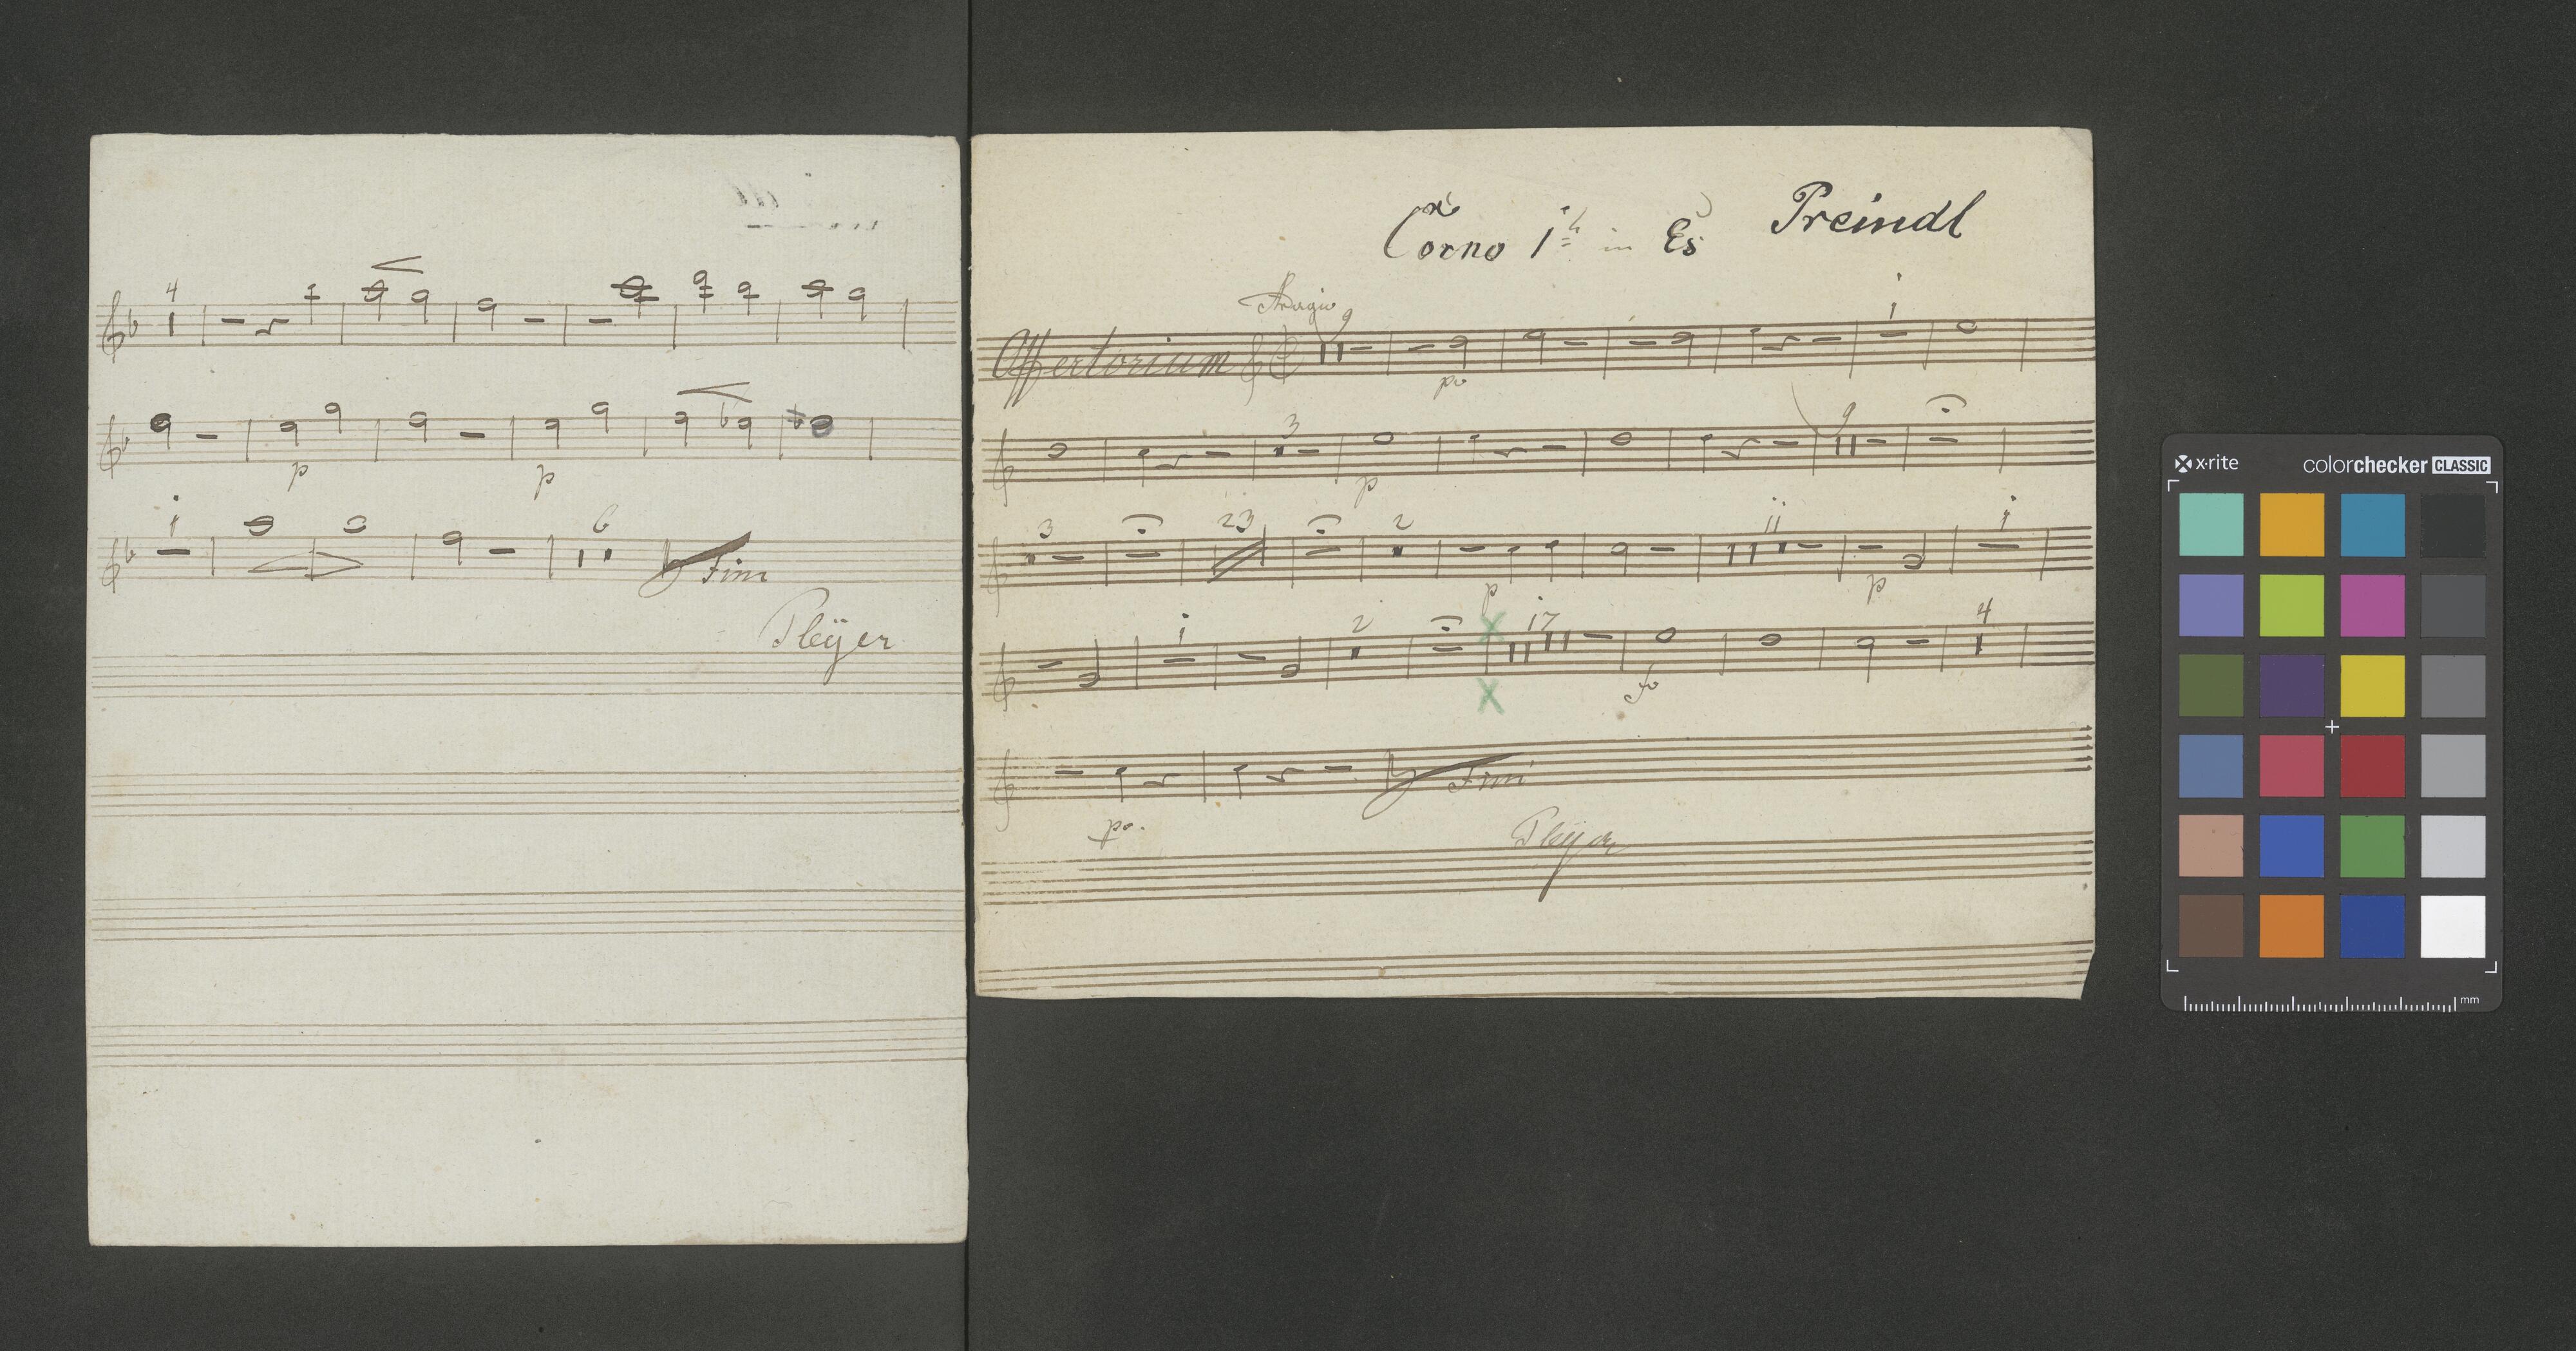 4
p p
1
6
Fini
Pleÿer
Corno 1 in Es Preindl
Adagio 9
1
Offertorium
po
3 9
p
3 23 2 11 1
p p
1 2 17 4
X
fo
X
Fini
po.
Pleÿer
x·rite
colorchecker CLASSIC
mm